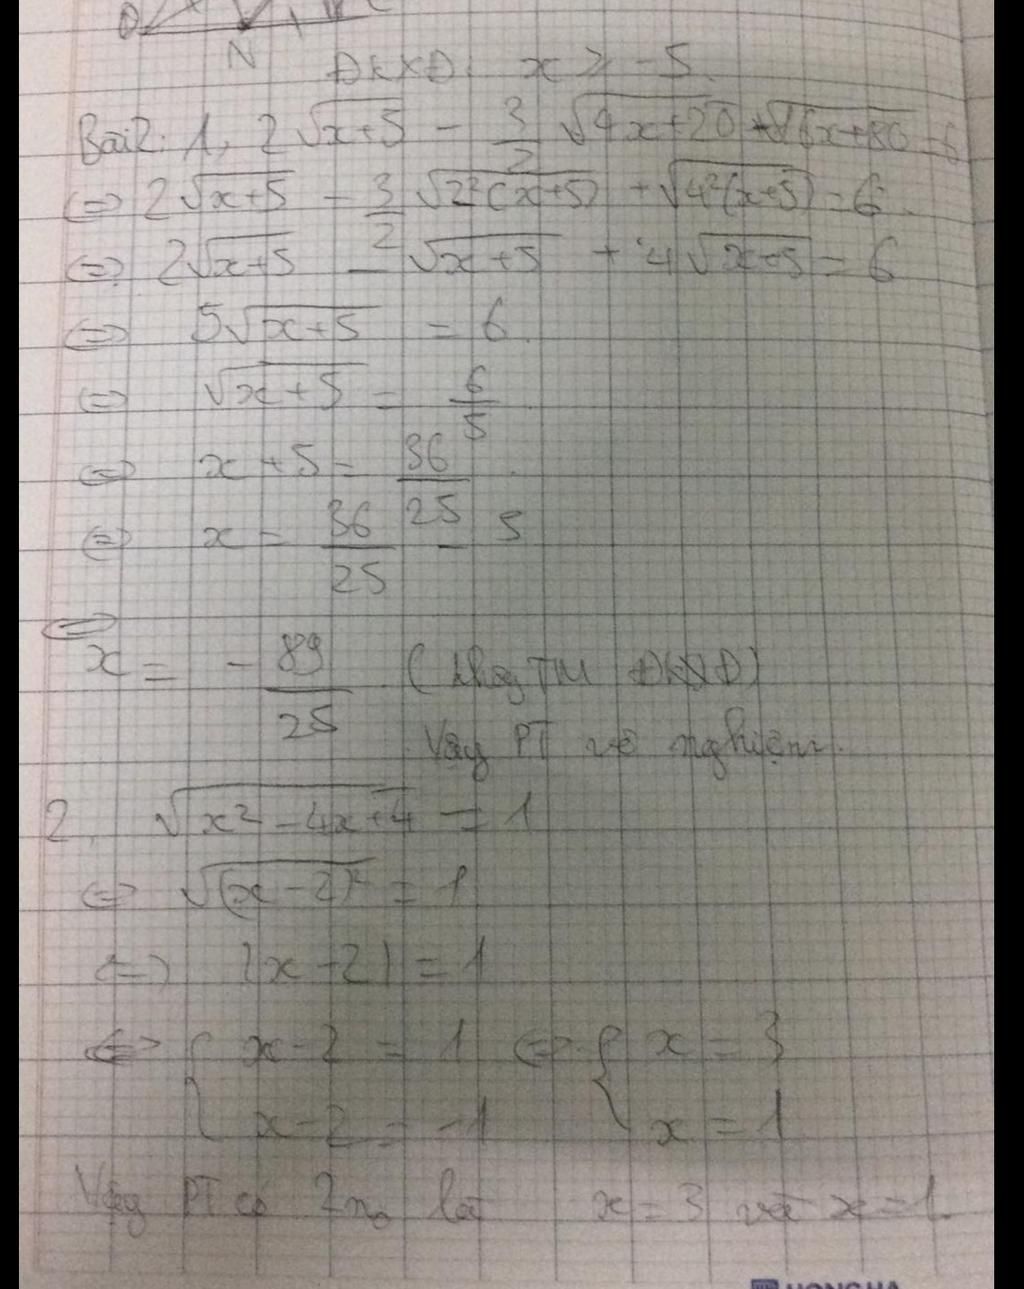 N
ĐKXĐ: x ≥ -5
Bài2: 1, 2√(x+5) - 3/2 √(4x+20) + √(16x+80) = 6
⇔ 2√(x+5) - 3/2 √(2²(x+5)) + √(4²(x+5)) = 6
⇔ 2√(x+5) - √(x+5) + 4√(x+5) = 6
⇔ 5√(x+5) = 6
⇔ √(x+5) = 6/5
⇔ x+5 = 36/25
⇔ x = 36/25 - 5
⇔
x = - 89/25 (không TM ĐKXĐ)
Vậy PT vô nghiệm.
2, √(x² - 4x + 4) = 1
⇔ √((x-2)²) = 1
⇔ |x-2| = 1
⇔ { x-2 = 1 ⇔ { x = 3
x-2 = -1 x = 1
Vậy PT có 2 no là x = 3 và x = 1.
HONG HA